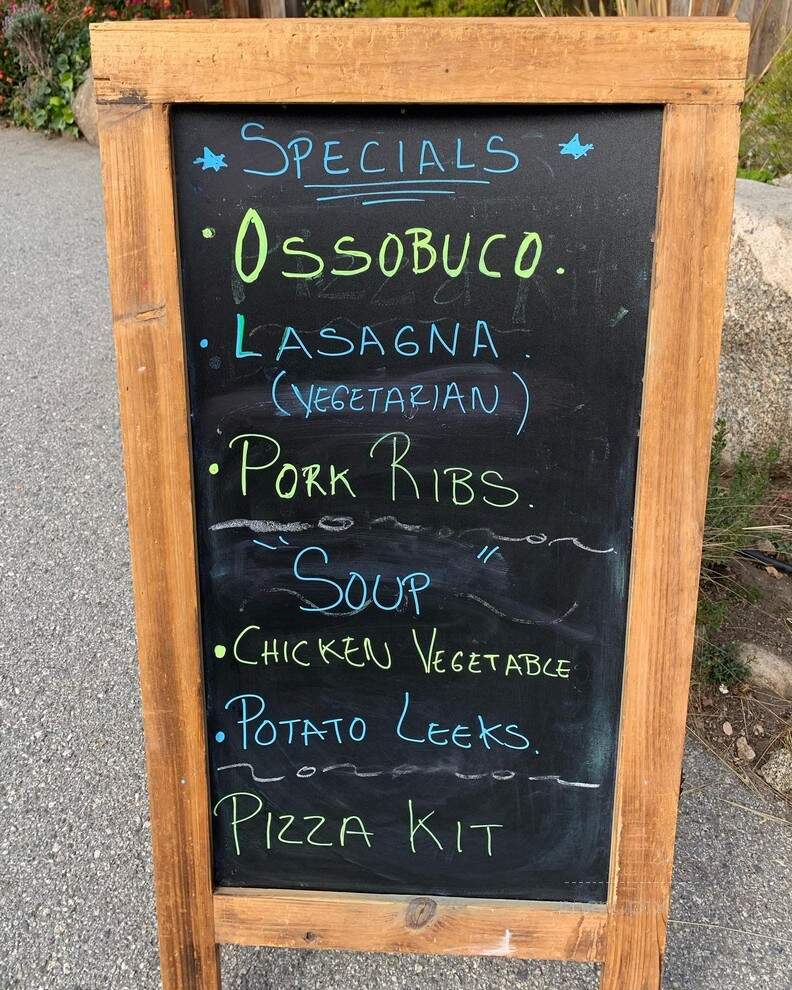 SPECIALS
• OSSOBUCO.
• LASAGNA.
(VEGETARIAN)
• PORK RIBS.
"SOUP"
• CHICKEN VEGETABLE
• POTATO LEEKS.
PIZZA KIT